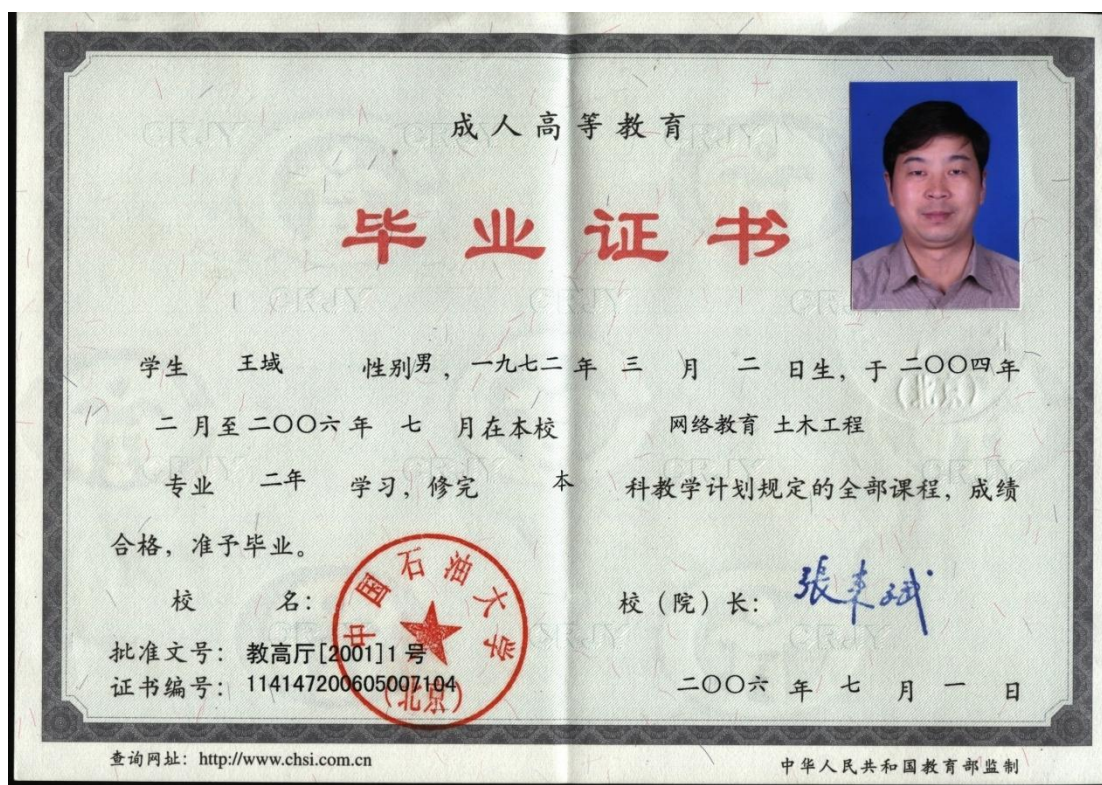 成人高等教育
毕业证书
学生 王域 性别男，一九七二年 三 月 二 日生，于二〇〇四年
二 月至二〇〇六年 七 月在本校 网络教育 土木工程
专业 二年 学习，修完 本 科教学计划规定的全部课程，成绩
合格，准予毕业。
校 名：
中国石油大学
(北京)
校（院）长： 張来斌
批准文号： 教高厅[2001]1 号
证书编号： 114147200605007104
二〇〇六 年 七 月 一 日
查询网址：http://www.chsi.com.cn
中华人民共和国教育部监制